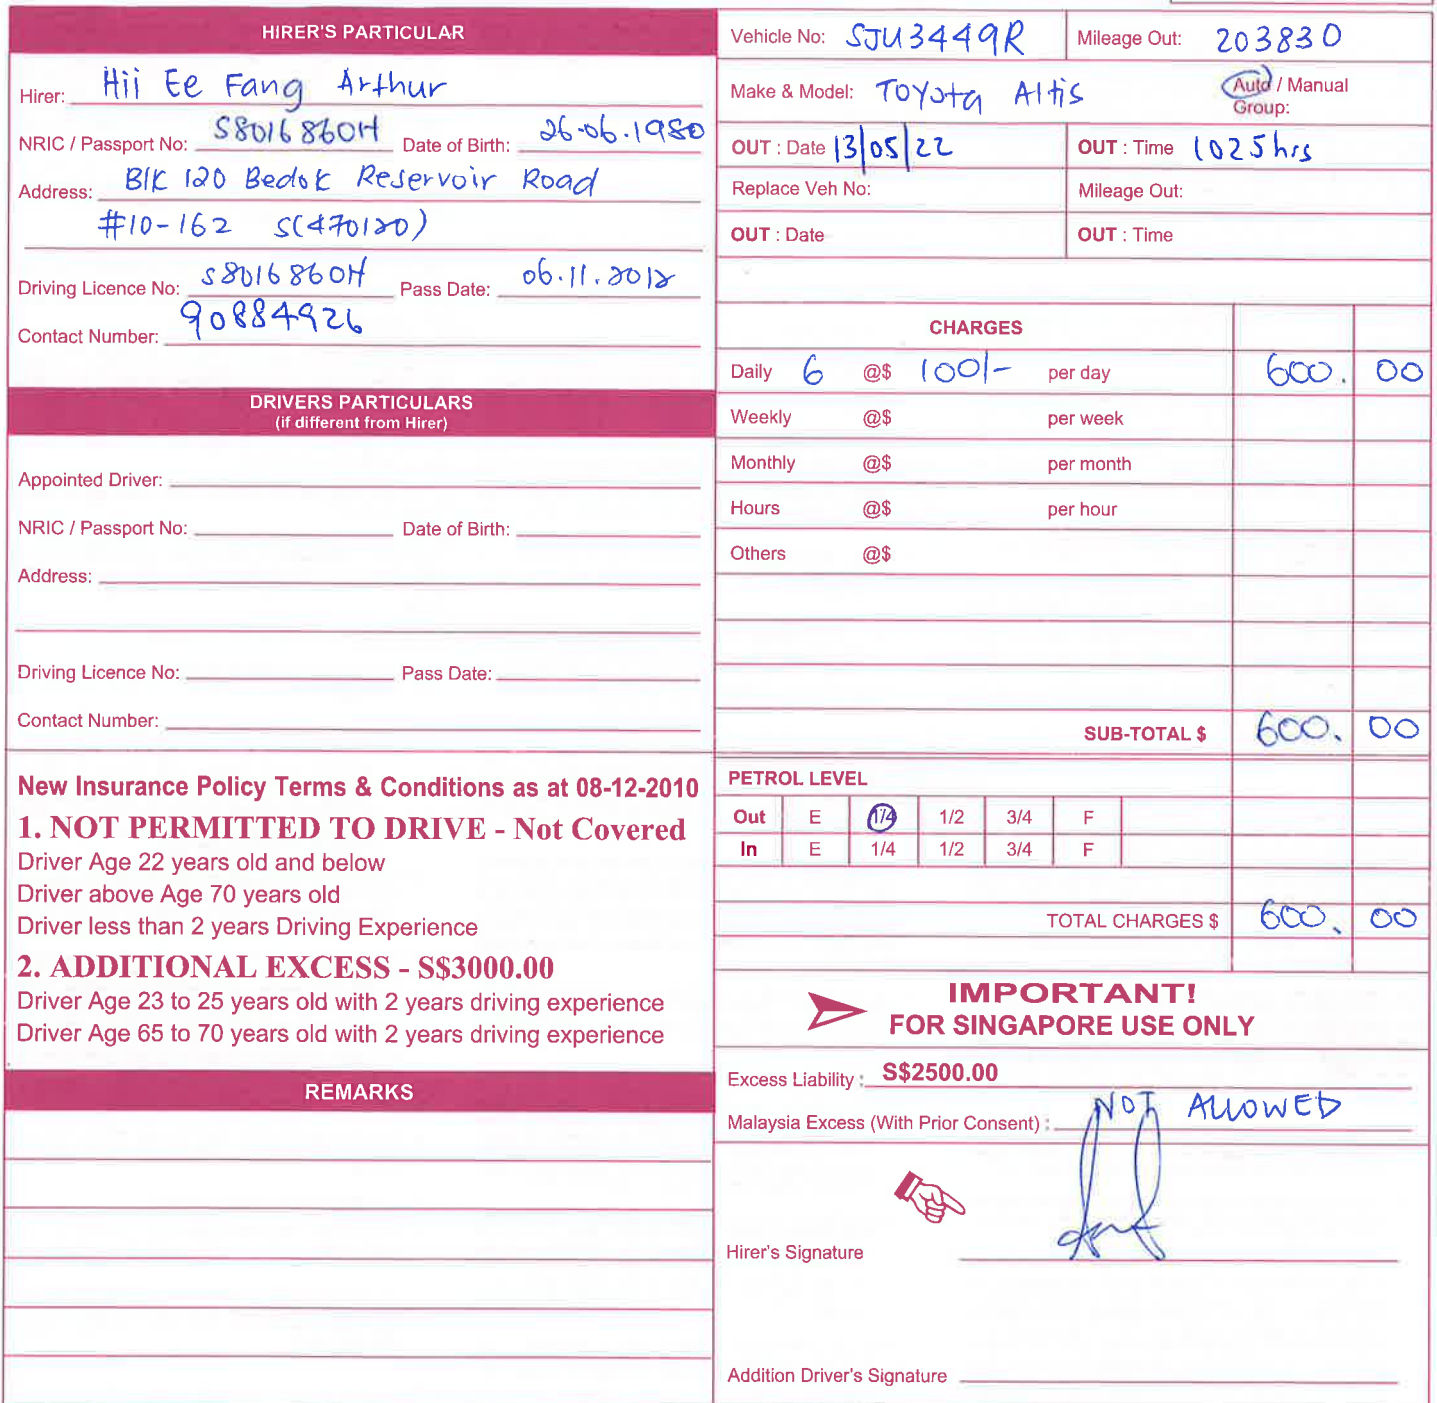 HIRER'S PARTICULAR
Hirer: Hii Ee Fang Arthur
NRIC / Passport No: S8016860H Date of Birth: 26.06.1980
Address: Blk 120 Bedok Reservoir Road
#10-162 S(470120)
Driving Licence No: S8016860H Pass Date: 06.11.2012
Contact Number: 90884926
DRIVERS PARTICULARS
(if different from Hirer)
Appointed Driver:
NRIC / Passport No: Date of Birth:
Address:
Driving Licence No: Pass Date:
Contact Number:
New Insurance Policy Terms & Conditions as at 08-12-2010
1. NOT PERMITTED TO DRIVE - Not Covered
Driver Age 22 years old and below
Driver above Age 70 years old
Driver less than 2 years Driving Experience
2. ADDITIONAL EXCESS - S$3000.00
Driver Age 23 to 25 years old with 2 years driving experience
Driver Age 65 to 70 years old with 2 years driving experience
REMARKS
Vehicle No: SJU3449R Mileage Out: 203830
Make & Model: TOYOTA Altis Auto / Manual
Group:
OUT : Date 13/05/22 OUT : Time 1025hrs
Replace Veh No: Mileage Out:
OUT : Date OUT : Time
CHARGES
Daily 6 @$ 100/- per day 600. 00
Weekly @$ per week
Monthly @$ per month
Hours @$ per hour
Others @$
SUB-TOTAL $ 600. 00
PETROL LEVEL
Out E 1/4 1/2 3/4 F
In E 1/4 1/2 3/4 F
TOTAL CHARGES $ 600. 00
IMPORTANT!
FOR SINGAPORE USE ONLY
Excess Liability : S$2500.00
Malaysia Excess (With Prior Consent) : NOT ALLOWED
Hirer's Signature
Addition Driver's Signature